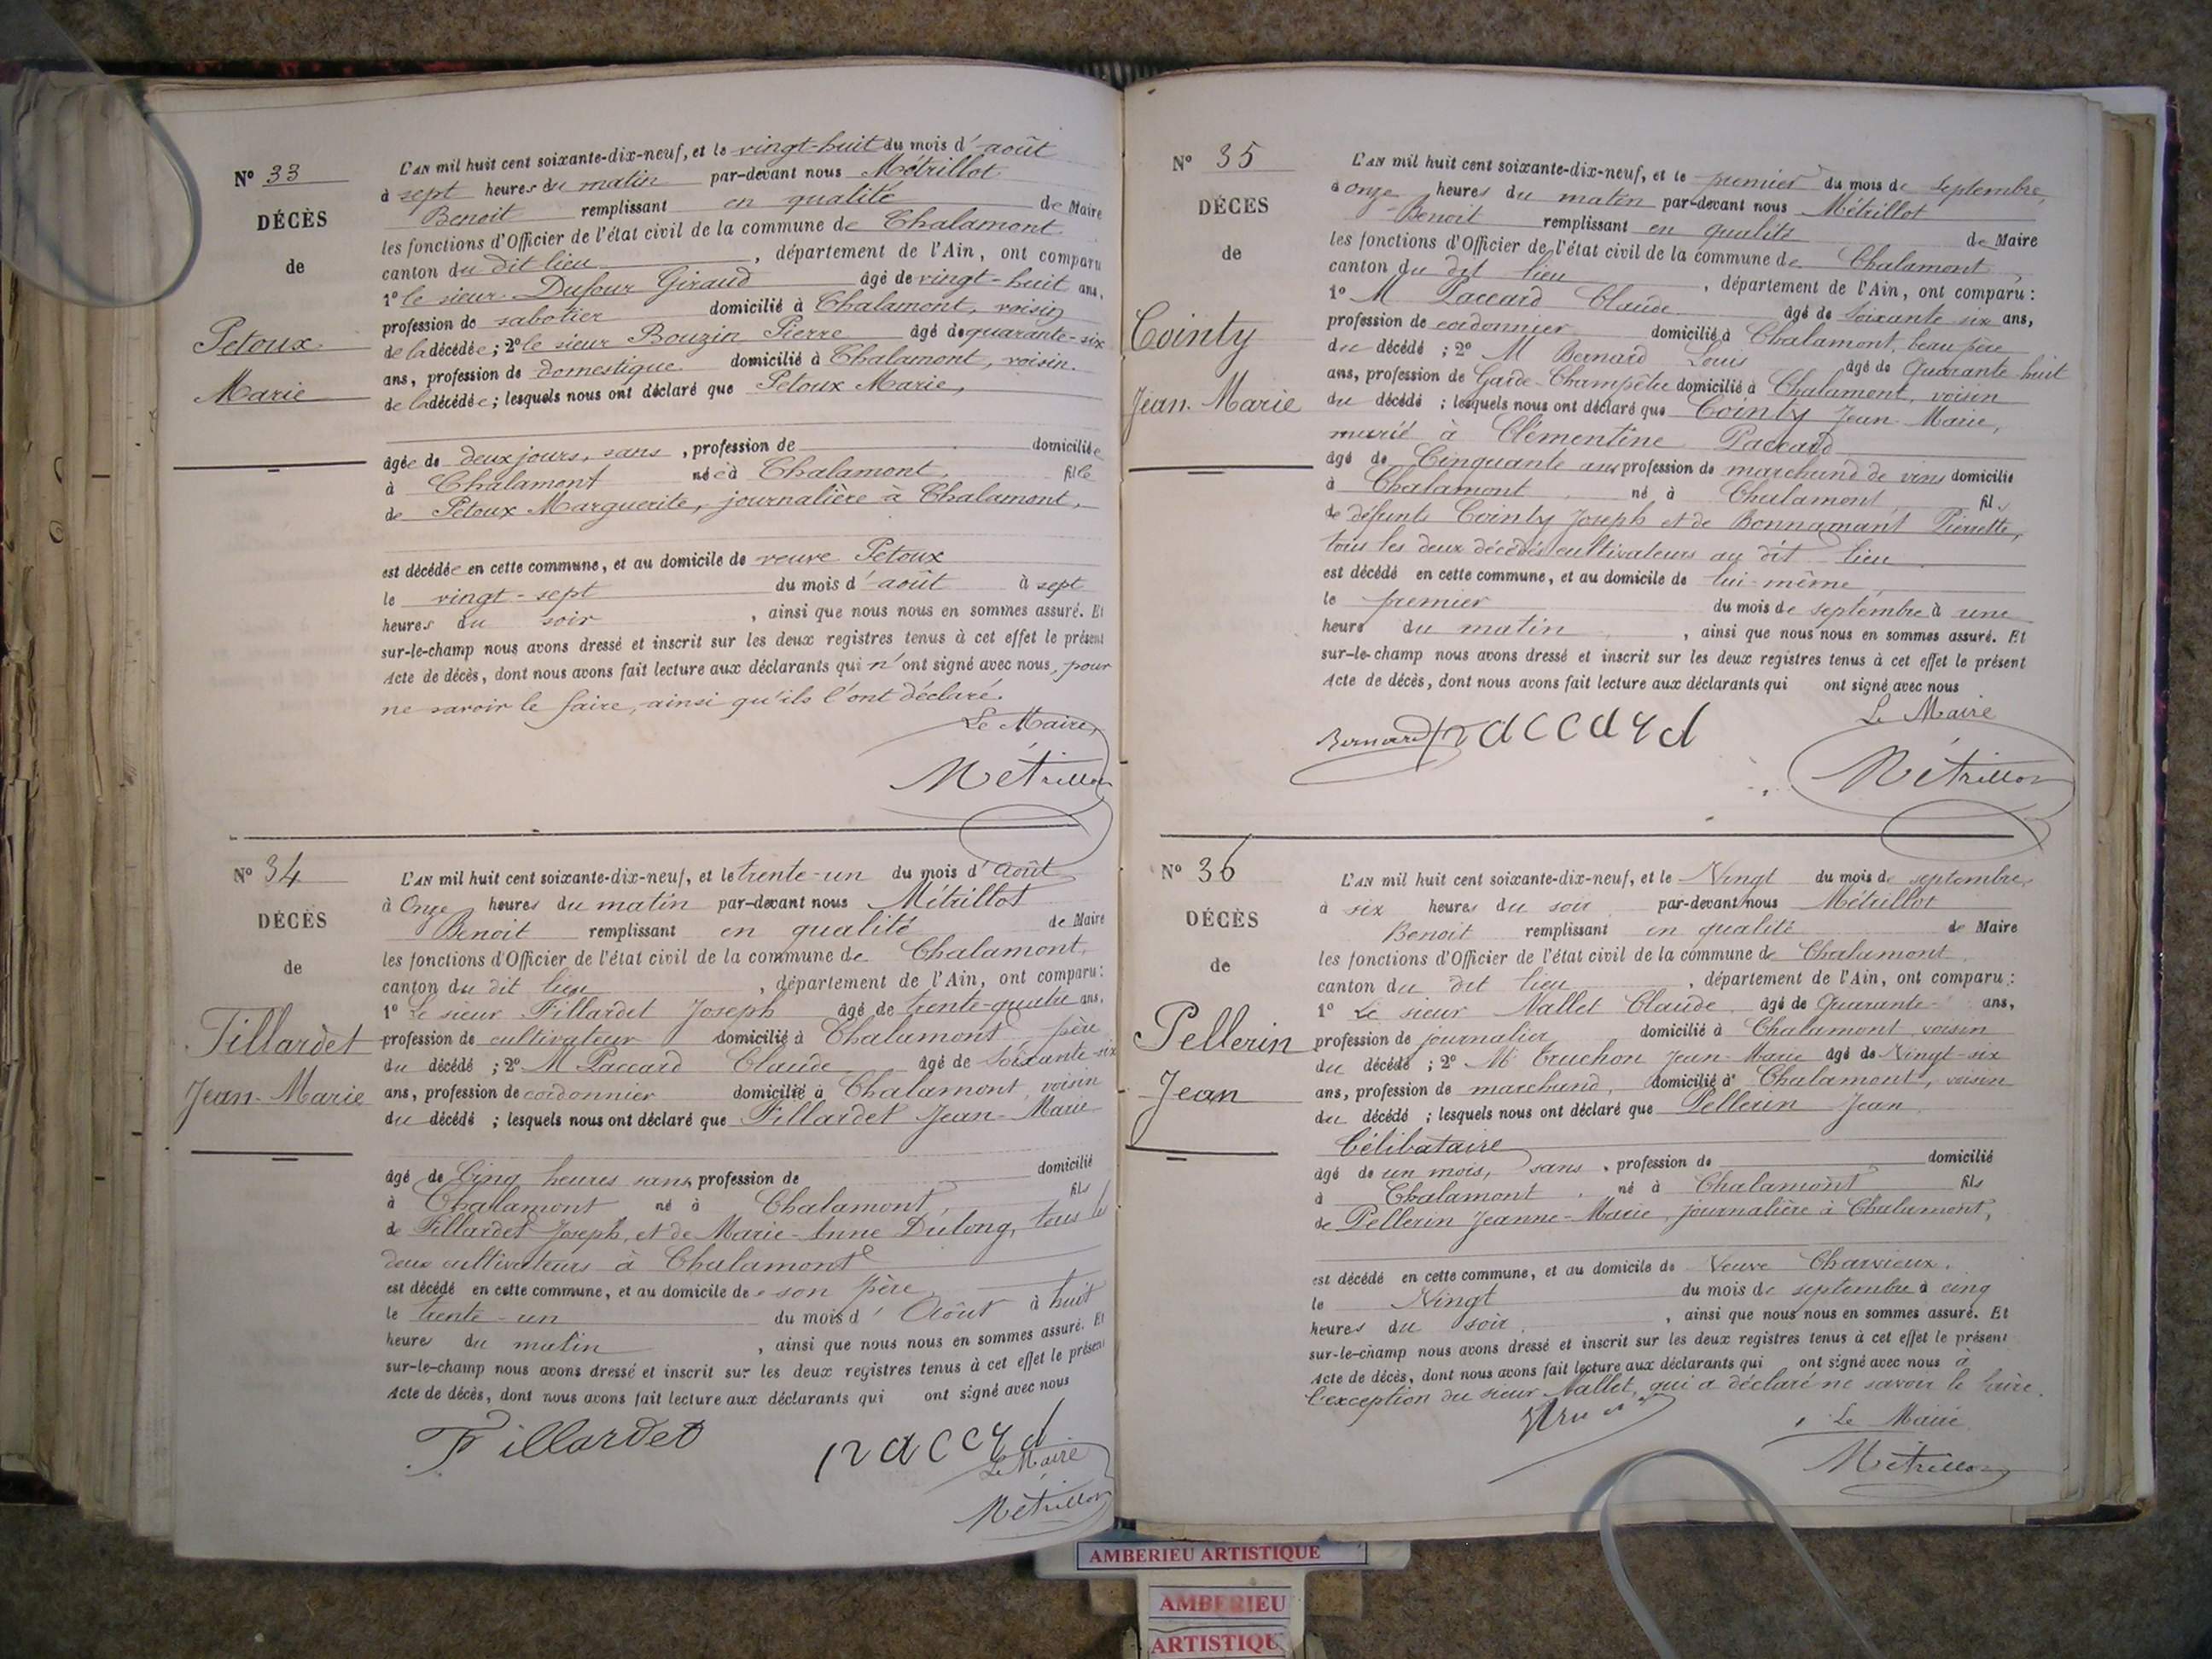 N° 33
DÉCÈS
de
Petoux
Marie
L'AN mil huit cent soixante-dix-neuf, et le vingt-huit du mois d'août
à sept heures du matin par-devant nous Métrillot
Benoit remplissant en qualité de Maire
les fonctions d'Officier de l'état civil de la commune de Chalamont
canton du dit lieu, département de l'Ain, ont comparu
1° le sieur Dufour Giraud âgé de vingt-huit ans,
profession de sabotier domicilié à Chalamont, voisin
de la décédée; 2° le sieur Bouzin Pierre âgé de quarante-six
ans, profession de domestique domicilié à Chalamont, voisin
de la décédée; lesquels nous ont déclaré que Petoux Marie,
âgée de deux jours, sans, profession de domiciliée
à Chalamont née à Chalamont, fille
de Petoux Marguerite, journalière à Chalamont,
est décédée en cette commune, et au domicile de veuve Petoux
le vingt-sept du mois d'août à sept
heures du soir, ainsi que nous nous en sommes assuré. Et
sur-le-champ nous avons dressé et inscrit sur les deux registres tenus à cet effet le présent
Acte de décès, dont nous avons fait lecture aux déclarants qui n'ont signé avec nous, pour
ne savoir le faire, ainsi qu'ils l'ont déclaré.
Le Maire,
Métrillot
N° 34
DÉCÈS
de
Fillardet
Jean-Marie
L'AN mil huit cent soixante-dix-neuf, et le trente-un du mois d'Août
à Onze heures du matin par-devant nous Métrillot
Benoit remplissant en qualité de Maire
les fonctions d'Officier de l'état civil de la commune de Chalamont,
canton du dit lieu, département de l'Ain, ont comparu:
1° Le sieur Fillardet Joseph âgé de trente-quatre ans,
profession de cultivateur domicilié à Chalamont père
du décédé; 2° M Paccard Claude âgé de Soixante-six
ans, profession de cordonnier domicilié à Chalamont, voisin
du décédé; lesquels nous ont déclaré que Fillardet Jean-Marie
âgé de Cinq heures sans profession de domicilié
à Chalamont né à Chalamont, fils
de Fillardet Joseph, et de Marie-Anne Dulong, tous les
deux cultivateurs à Chalamont
est décédé en cette commune, et au domicile de son père
le trente-un du mois d'Août à huit
heures du matin, ainsi que nous nous en sommes assuré. Et
sur-le-champ nous avons dressé et inscrit sur les deux registres tenus à cet effet le présent
Acte de décès, dont nous avons fait lecture aux déclarants qui ont signé avec nous
Fillardet Paccard
Le Maire
Métrillot
N° 35
DÉCES
de
Cointy
Jean-Marie
L'AN mil huit cent soixante-dix-neuf, et le premier du mois de septembre,
à onze heures du matin par-devant nous Métrillot
Benoit remplissant en qualité de Maire
les fonctions d'Officier de l'état civil de la commune de Chalamont,
canton du dit lieu, département de l'Ain, ont comparu:
1° M Paccard Claude âgé de Soixante six ans,
profession de cordonnier domicilié à Chalamont, beau père
du décédé; 2° M Bernard Louis âgé de Quarante huit
ans, profession de Garde-Champêtre domicilié à Chalamont, voisin
du décédé; lesquels nous ont déclaré que Cointy Jean-Marie,
marié à Clémentine Paccard
âgé de Cinquante ans profession de marchand de vins domicilié
à Chalamont né à Chalamont fils
de défunts Cointy Joseph et de Bonnamant Pierrette,
tous les deux décédés cultivateurs au dit lieu
est décédé en cette commune, et au domicile de lui-même
le premier du mois de septembre à une
heure du matin, ainsi que nous nous en sommes assuré. Et
sur-le-champ nous avons dressé et inscrit sur les deux registres tenus à cet effet le présent
Acte de décès, dont nous avons fait lecture aux déclarants qui ont signé avec nous
Le Maire
Bernard Paccard
Métrillot
N° 36
DÉCÈS
de
Pellerin
Jean
L'AN mil huit cent soixante-dix-neuf, et le Vingt du mois de septembre,
à six heures du soir par-devant nous Métrillot
Benoit remplissant en qualité de Maire
les fonctions d'Officier de l'état civil de la commune de Chalamont
canton du dit lieu, département de l'Ain, ont comparu:
1° Le sieur Nallet Claude âgé de Quarante ans,
profession de journalier domicilié à Chalamont, voisin
du décédé; 2° M Truchon Jean-Marie âgé de Vingt-six
ans, profession de marchand, domicilié à Chalamont, voisin
du décédé; lesquels nous ont déclaré que Pellerin Jean
Célibataire
âgé de un mois, sans, profession de domicilié
à Chalamont, né à Chalamont fils
de Pellerin Jeanne-Marie, journalière à Chalamont,
est décédé en cette commune, et au domicile de Veuve Charvieux,
le Vingt du mois de septembre à cinq
heures du soir, ainsi que nous nous en sommes assuré. Et
sur-le-champ nous avons dressé et inscrit sur les deux registres tenus à cet effet le présent
Acte de décès, dont nous avons fait lecture aux déclarants qui ont signé avec nous à
l'exception du sieur Nallet, qui a déclaré ne savoir le faire.
Le Maire
Métrillot
AMBERIEU ARTISTIQUE
AMBERIEU
ARTISTIQU